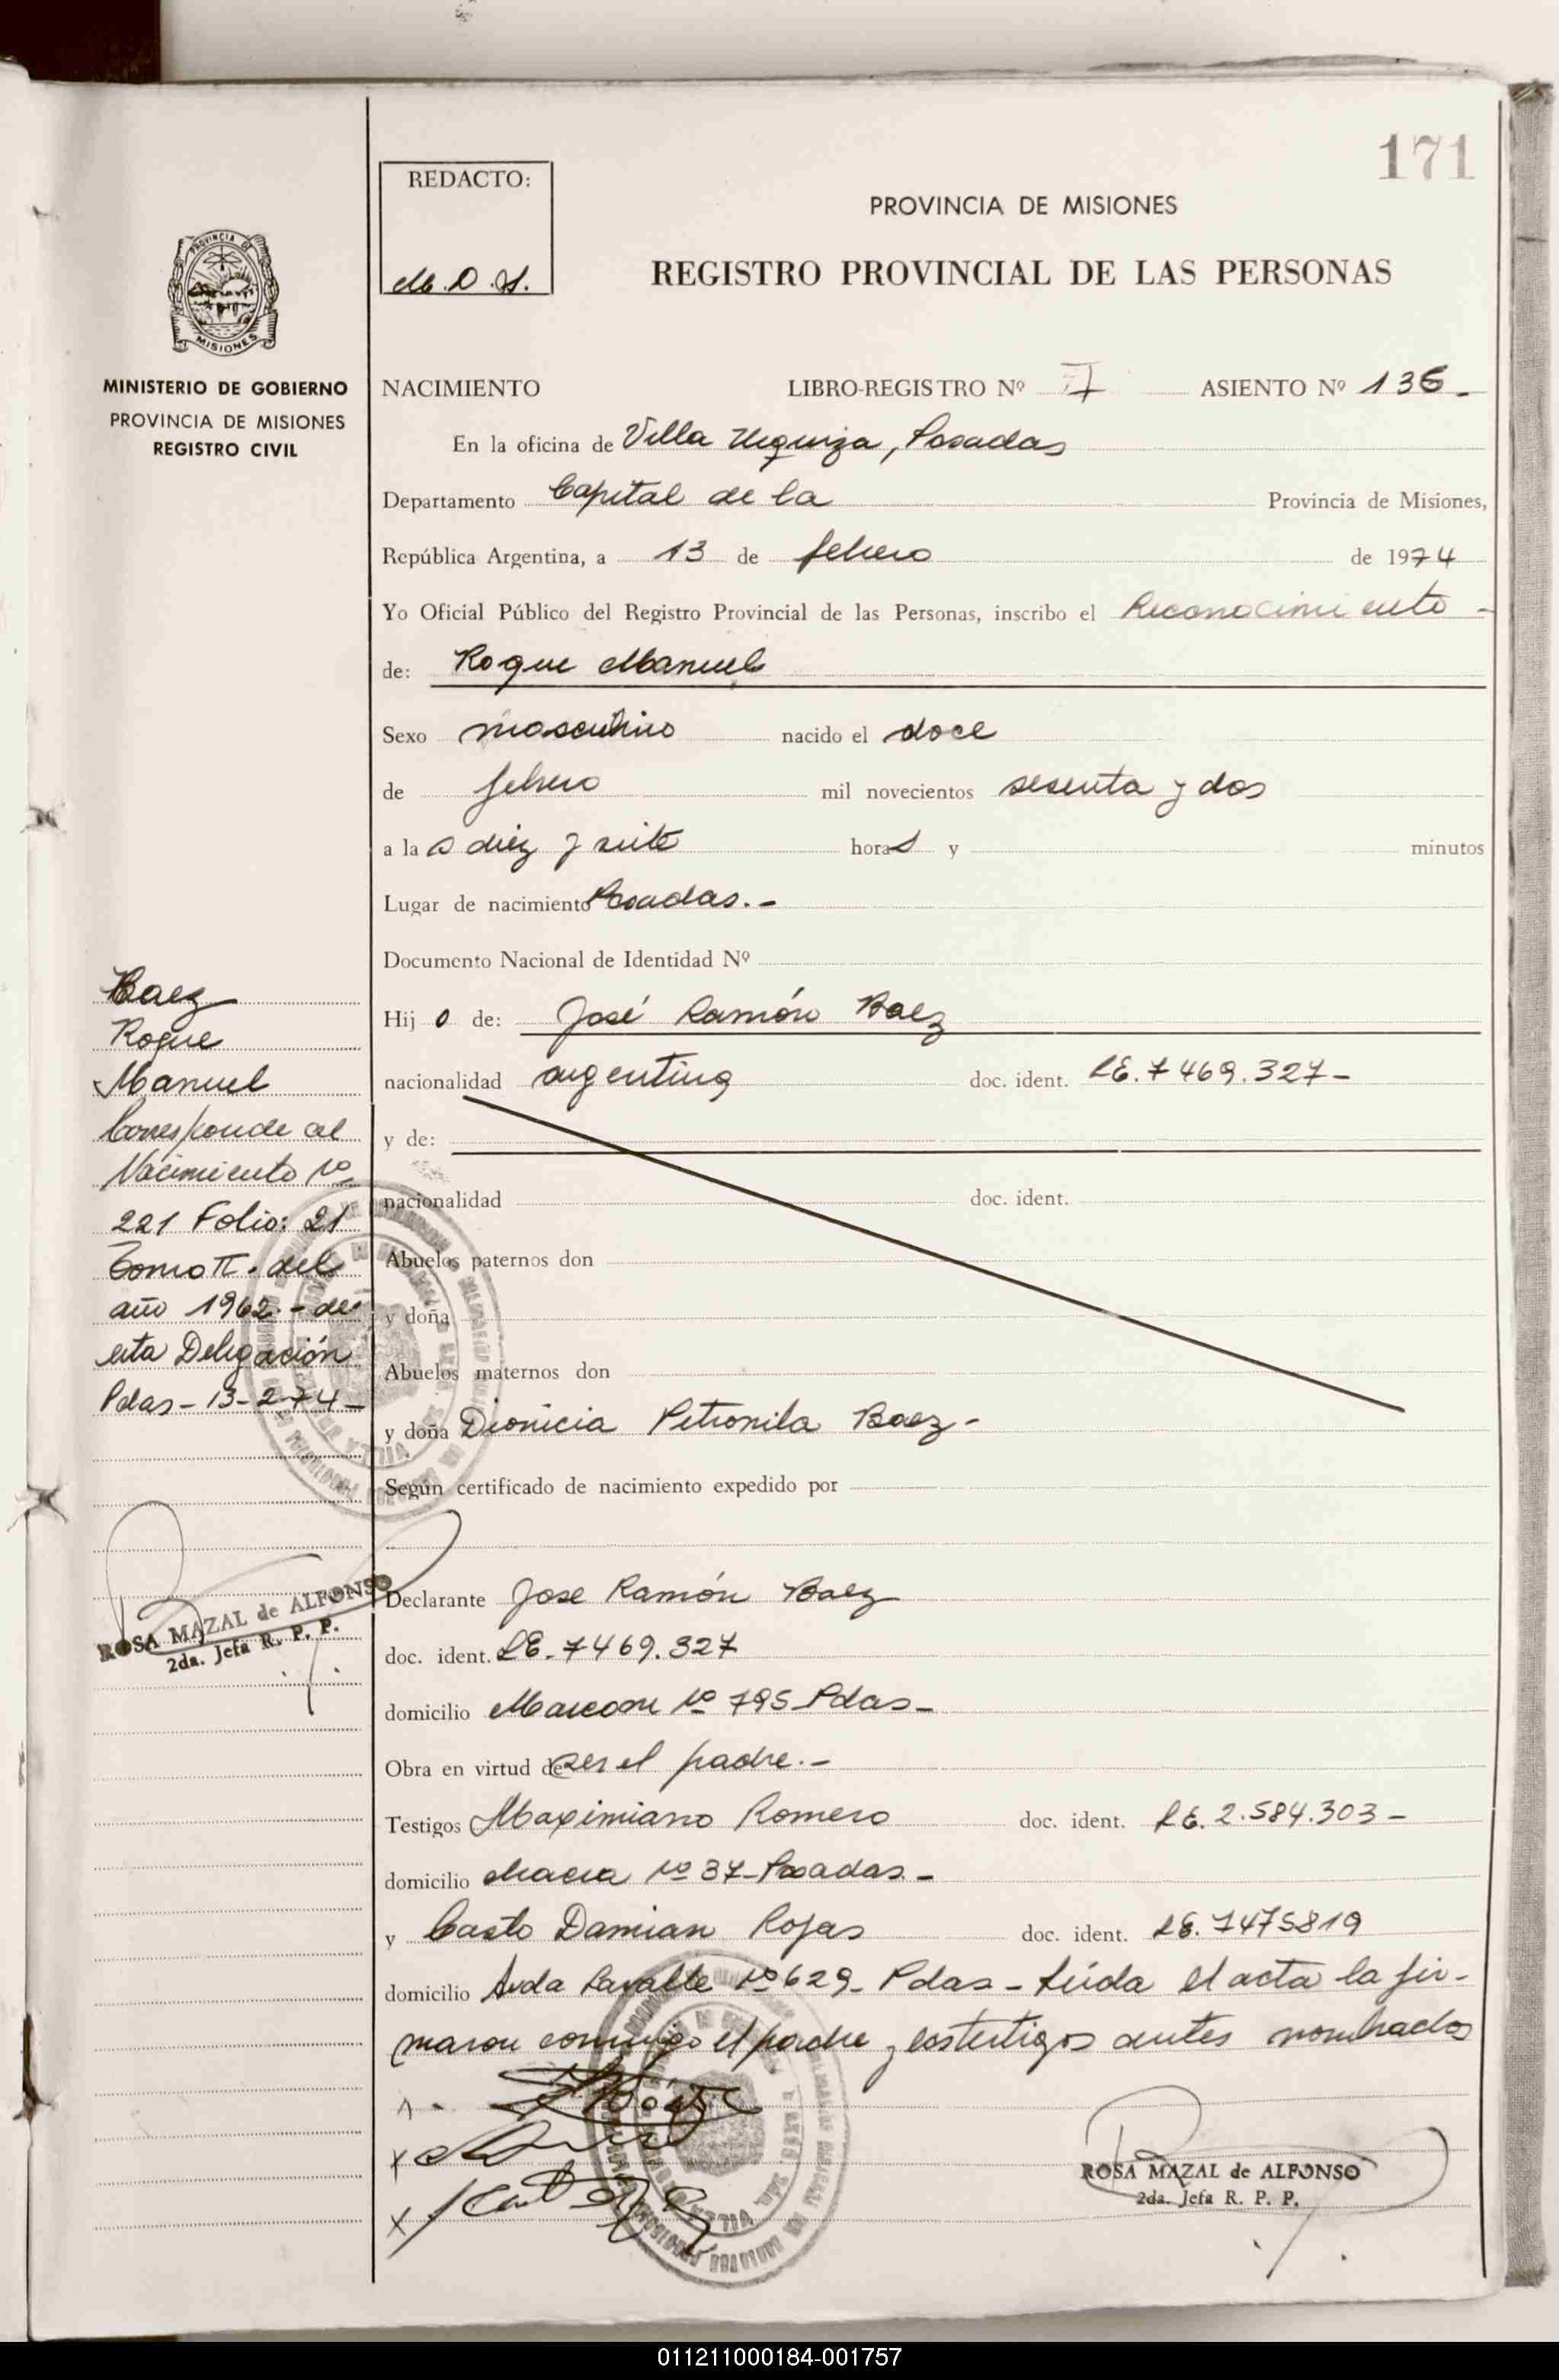 171
REDACTO:
M.D.S.
PROVINCIA DE MISIONES
REGISTRO PROVINCIAL DE LAS PERSONAS
PROVINCIA DE
MISIONES
MINISTERIO DE GOBIERNO
PROVINCIA DE MISIONES
REGISTRO CIVIL
NACIMIENTO LIBRO-REGISTRO Nº II ASIENTO Nº 136.
En la oficina de Villa Urquiza, Posadas
Departamento Capital de la Provincia de Misiones,
República Argentina, a 13 de febrero de 1974
Yo Oficial Público del Registro Provincial de las Personas, inscribo el Reconocimiento -
de: Roque Manuel
Sexo masculino nacido el doce
de febrero mil novecientos sesenta y dos
a la s diez y siete horas y minutos
Lugar de nacimiento Posadas.-
Documento Nacional de Identidad Nº
Hij o de: José Ramón Baez
nacionalidad argentina doc. ident. LE. 7469.327-
y de:
nacionalidad doc. ident.
Abuelos paternos don
y doña
Abuelos maternos don
y doña Dionicia Petronila Baez-
Según certificado de nacimiento expedido por
Declarante Jose Ramón Baez
doc. ident. LE. 7469.327
domicilio Marconi Nº 795 Pdas-
Obra en virtud de ser el padre.-
Testigos Maximiano Romero doc. ident. LE. 2.584.303-
domicilio chacra Nº 37-Posadas.-
y Casto Damian Rojas doc. ident. LE. 7475819
domicilio Avda Lavalle Nº 629- Pdas- Leida el acta la fir-
maron conmigo el padre y los testigos antes nombrados
ROSA MAZAL de ALFONSO
2da. Jefa R. P. P.
Baez
Roque
Manuel
Corresponde al
Nacimiento Nº
221 Folio: 21
Tomo II. del
año 1962.- de
esta Delegación
Pdas- 13-2-74-
ROSA MAZAL de ALFONSO
2da. Jefa R. P. P.
011211000184-001757